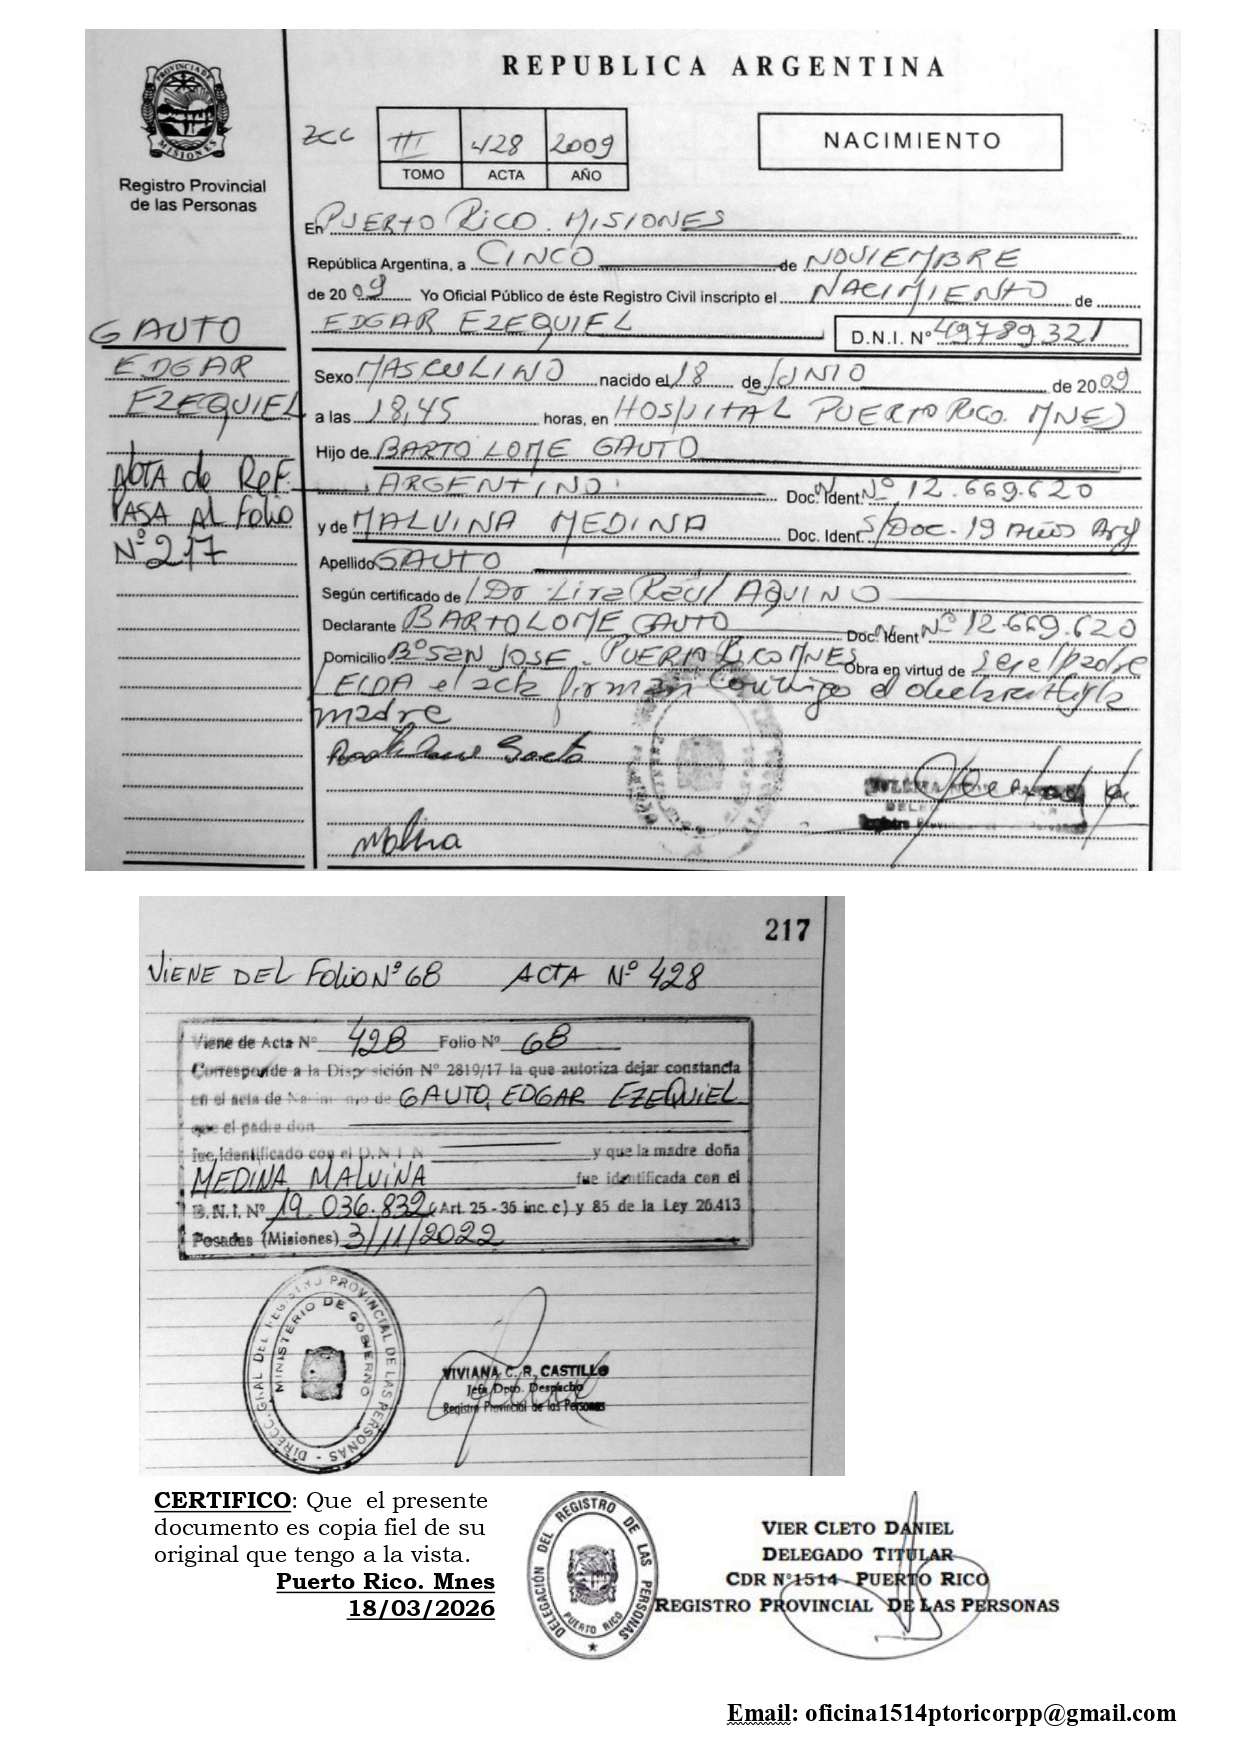 REPUBLICA ARGENTINA
PROVINCIA DE MISIONES
Registro Provincial
de las Personas
III 428 2009
TOMO ACTA AÑO
NACIMIENTO
En PUERTO RICO. MISIONES
República Argentina, a CINCO de NOVIEMBRE
de 2009 Yo Oficial Público de éste Registro Civil inscripto el NACIMIENTO de
EDGAR EZEQUIEL D.N.I. Nº 49789321
GAUTO
EDGAR
EZEQUIEL
NOTA de REF.
PASA AL FOLIO
Nº 217
Sexo MASCULINO nacido el 18 de JUNIO de 2009
a las 18,45 horas, en HOSPITAL PUERTO RICO. MNES
Hijo de BARTOLOME GAUTO
ARGENTINO Doc. Ident. Nº 12.669.620
y de MALVINA MEDINA Doc. Ident. S/Doc - 19 AÑOS Arg
Apellido GAUTO
Según certificado de Raúl AQUINO
Declarante BARTOLOME GAUTO Doc. Ident Nº 12.669.620
Domicilio Bº San JOSE - PUERTO RICO MNES Obra en virtud de ser el padre
el acta firman conmigo el declarante y la
madre
217
VIENE DEL FOLIO Nº 68 ACTA Nº 428
Viene de Acta Nº 428 Folio Nº 68
Corresponde a la Disposición Nº 2819/17 la que autoriza dejar constancia
en el acta de Nacimiento de GAUTO, EDGAR EZEQUIEL
que el padre don
fue identificado con el D.N.I. N y que la madre doña
MEDINA, MALVINA fue identificada con el
D.N.I. Nº 19.036.832 (Art. 25 - 36 inc. c) y 85 de la Ley 26.413
Posadas (Misiones) 3/11/2022
DIRECC. GRAL DEL REGISTRO PROVINCIAL DE LAS PERSONAS
MINISTERIO DE GOBIERNO
VIVIANA C. R. CASTILLO
Jefa Dpto. Despacho
Registro Provincial de las Personas
CERTIFICO: Que el presente
documento es copia fiel de su
original que tengo a la vista.
Puerto Rico. Mnes
18/03/2026
DELEGACIÓN DEL REGISTRO DE LAS PERSONAS
PUERTO RICO
VIER CLETO DANIEL
DELEGADO TITULAR
CDR N°1514 - PUERTO RICO
REGISTRO PROVINCIAL DE LAS PERSONAS
Email: oficina1514ptoricorpp@gmail.com